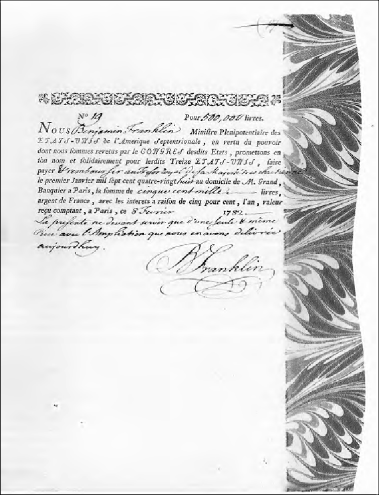 Nº 19 Pour 500,000 livres.
NOUS Benjamin Franklin Ministre Plenipotentiaire des
ETATS-UNIS de l'Amerique Septentrionale, en vertu du pouvoir
dont nous sommes revetus par le CONGRES desdits Etats, promettons en
son nom et solidairement pour lesdits Treize ETATS-UNIS, faire
payer & rembourser au tresor royal de sa Majesté tres chretienne
le premier Janvier mil sept cent quatre-vingt huit au domicile de M. Grand,
Banquier a Paris, la somme de cinq cent mille livres,
argent de France, avec les interets a raison de cinq pour cent, l'an, valeur
reçu comptant, a Paris, ce 8 Fevrier 1782
La presente ne devant servir que d'une seule & même
avec l'Ampliation que nous en avons delivrée
aujourdhuy
B Franklin